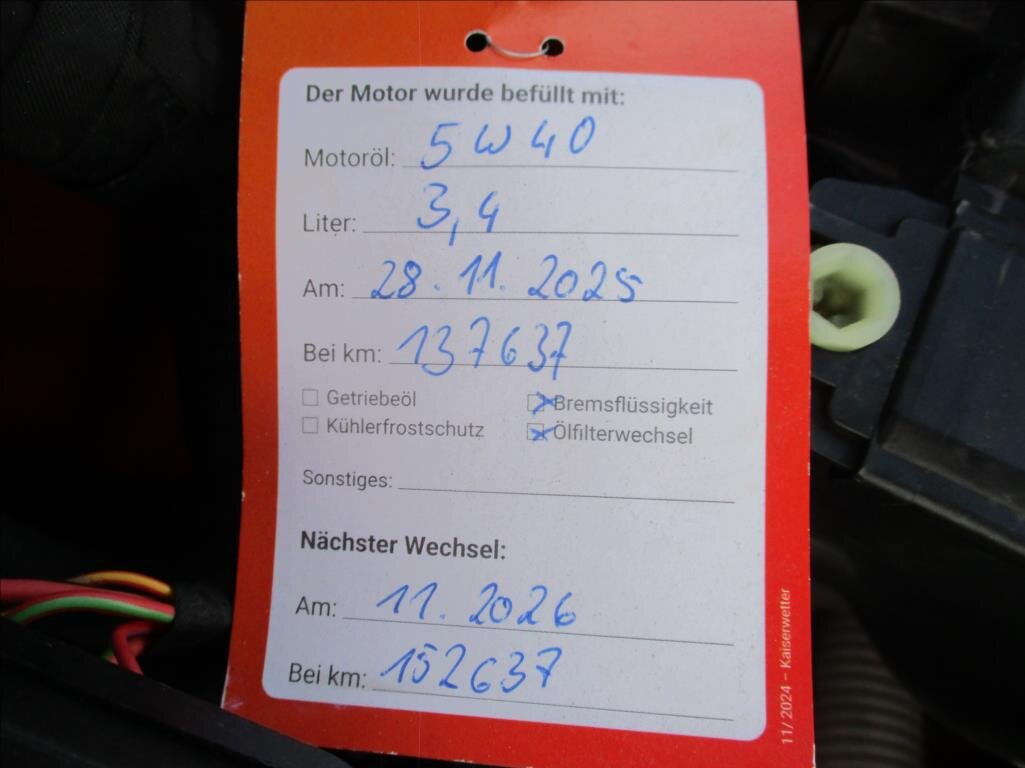 Der Motor wurde befüllt mit:
Motoröl: 5W40
Liter: 3,4
Am: 28.11.2025
Bei km: 137637
Getriebeöl Bremsflüssigkeit
Kühlerfrostschutz Ölfilterwechsel
Sonstiges:
Nächster Wechsel:
Am: 11.2026
Bei km: 152637
11/2024 – Kaiserwetter